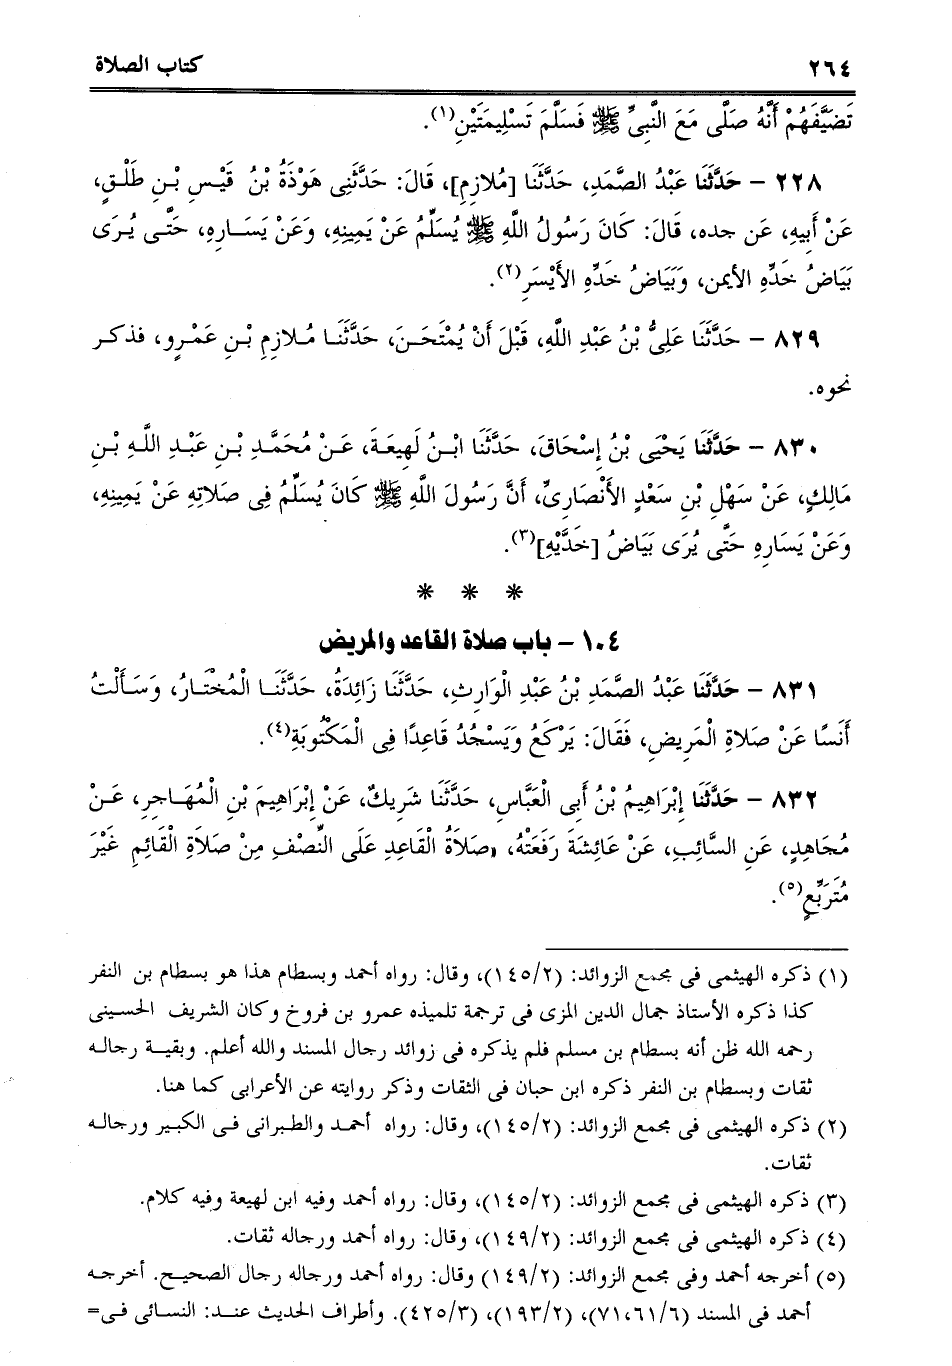 ٢٦٤ كتاب الصلاة
تَضَيَّفَهُمْ أَنَّهُ صَلَّى مَعَ النَّبِيِّ ﷺ فَسَلَّمَ تَسْلِيمَتَيْنِ(١).
٢٢٨ – حَدَّثَنَا عَبْدُ الصَّمَدِ، حَدَّثَنَا [مُلازِم]، قَالَ: حَدَّثَنِى هَوْذَةُ بْنُ قَيْسِ بْنِ طَلْقٍ،
عَنْ أَبِيهِ، عَن جده، قَالَ: كَانَ رَسُولُ اللَّهِ ﷺ يُسَلِّمُ عَنْ يَمِينِهِ، وَعَنْ يَسَارِهِ، حَتَّى يُرَى
بَيَاضُ خَدِّهِ الأيمن، وَبَيَاضُ خَدِّهِ الأَيْسَرِ(٢).
٨٢٩ – حَدَّثَنَا عَلِىُّ بْنُ عَبْدِ اللَّهِ، قَبْلَ أَنْ يُمْتَحَنَ، حَدَّثَنَا مُلازِمِ بْنِ عَمْرٍو، فذكر
نحوه.
٨٣٠ – حَدَّثَنَا يَحْيَى بْنُ إِسْحَاقَ، حَدَّثَنَا ابْنُ لَهِيعَةَ، عَنْ مُحَمَّدِ بْنِ عَبْدِ اللَّهِ بْنِ
مَالِكٍ، عَنْ سَهْلِ بْنِ سَعْدٍ الأَنْصَارِىِّ، أَنَّ رَسُولَ اللَّهِ ﷺ كَانَ يُسَلِّمُ فِى صَلاتِهِ عَنْ يَمِينِهِ،
وَعَنْ يَسَارِهِ حَتَّى يُرَى بَيَاضُ [خَدَّيْهِ](٣).
* * *
١٠٤ – باب صلاة القاعد والمريض
٨٣١ – حَدَّثَنَا عَبْدُ الصَّمَدِ بْنُ عَبْدِ الْوَارِثِ، حَدَّثَنَا زَائِدَةُ، حَدَّثَنَا الْمُخْتَارُ، وَسَأَلْتُ
أَنَسًا عَنْ صَلاةِ الْمَرِيضِ، فَقَالَ: يَرْكَعُ وَيَسْجُدُ قَاعِدًا فِى الْمَكْتُوبَةِ(٤).
٨٣٢ – حَدَّثَنَا إِبْرَاهِيمُ بْنُ أَبِى الْعَبَّاسِ، حَدَّثَنَا شَرِيكٌ، عَنْ إِبْرَاهِيمَ بْنِ الْمُهَاجِرِ، عَنْ
مُجَاهِدٍ، عَنِ السَّائِبِ، عَنْ عَائِشَةَ رَفَعَتْهُ، «صَلاَةُ الْقَاعِدِ عَلَى النِّصْفِ مِنْ صَلاَةِ الْقَائِمِ غَيْرَ
مُتَرَبِّعٍ(٥).
(١) ذكره الهيثمى فى مجمع الزوائد: (١٤٥/٢)، وقال: رواه أحمد وبسطام هذا هو بسطام بن النفر
كذا ذكره الأستاذ جمال الدين المزى فى ترجمة تلميذه عمرو بن فروخ وكان الشريف الحسينى
رحمه الله ظن أنه بسطام بن مسلم فلم يذكره فى زوائد رجال المسند والله أعلم. وبقية رجاله
ثقات وبسطام بن النفر ذكره ابن حبان فى الثقات وذكر روايته عن الأعرابى كما هنا.
(٢) ذكره الهيثمى فى مجمع الزوائد: (١٤٥/٢)، وقال: رواه أحمد والطبرانى فى الكبير ورجاله
ثقات.
(٣) ذكره الهيثمى فى مجمع الزوائد: (١٤٥/٢)، وقال: رواه أحمد وفيه ابن لهيعة وفيه كلام.
(٤) ذكره الهيثمى فى مجمع الزوائد: (١٤٩/٢)، وقال: رواه أحمد ورجاله ثقات.
(٥) أخرجه أحمد وفى مجمع الزوائد: (١٤٩/٢) وقال: رواه أحمد ورجاله رجال الصحيح. أخرجه
أحمد فى المسند (٧١،٦١/٦)، (١٩٣/٢)، (٤٢٥/٣). وأطراف الحديث عند: النسائى فى=